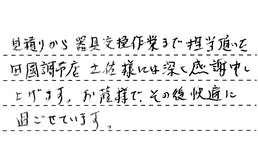 見積りから器具交換作業まで担当頂いた
四国調布店 土佐様には深く感謝申し
上げます。お蔭様でその後快適に
過ごせています。